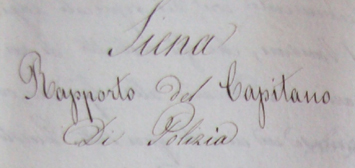 Siena
Rapporto del Capitano
Di Polizia